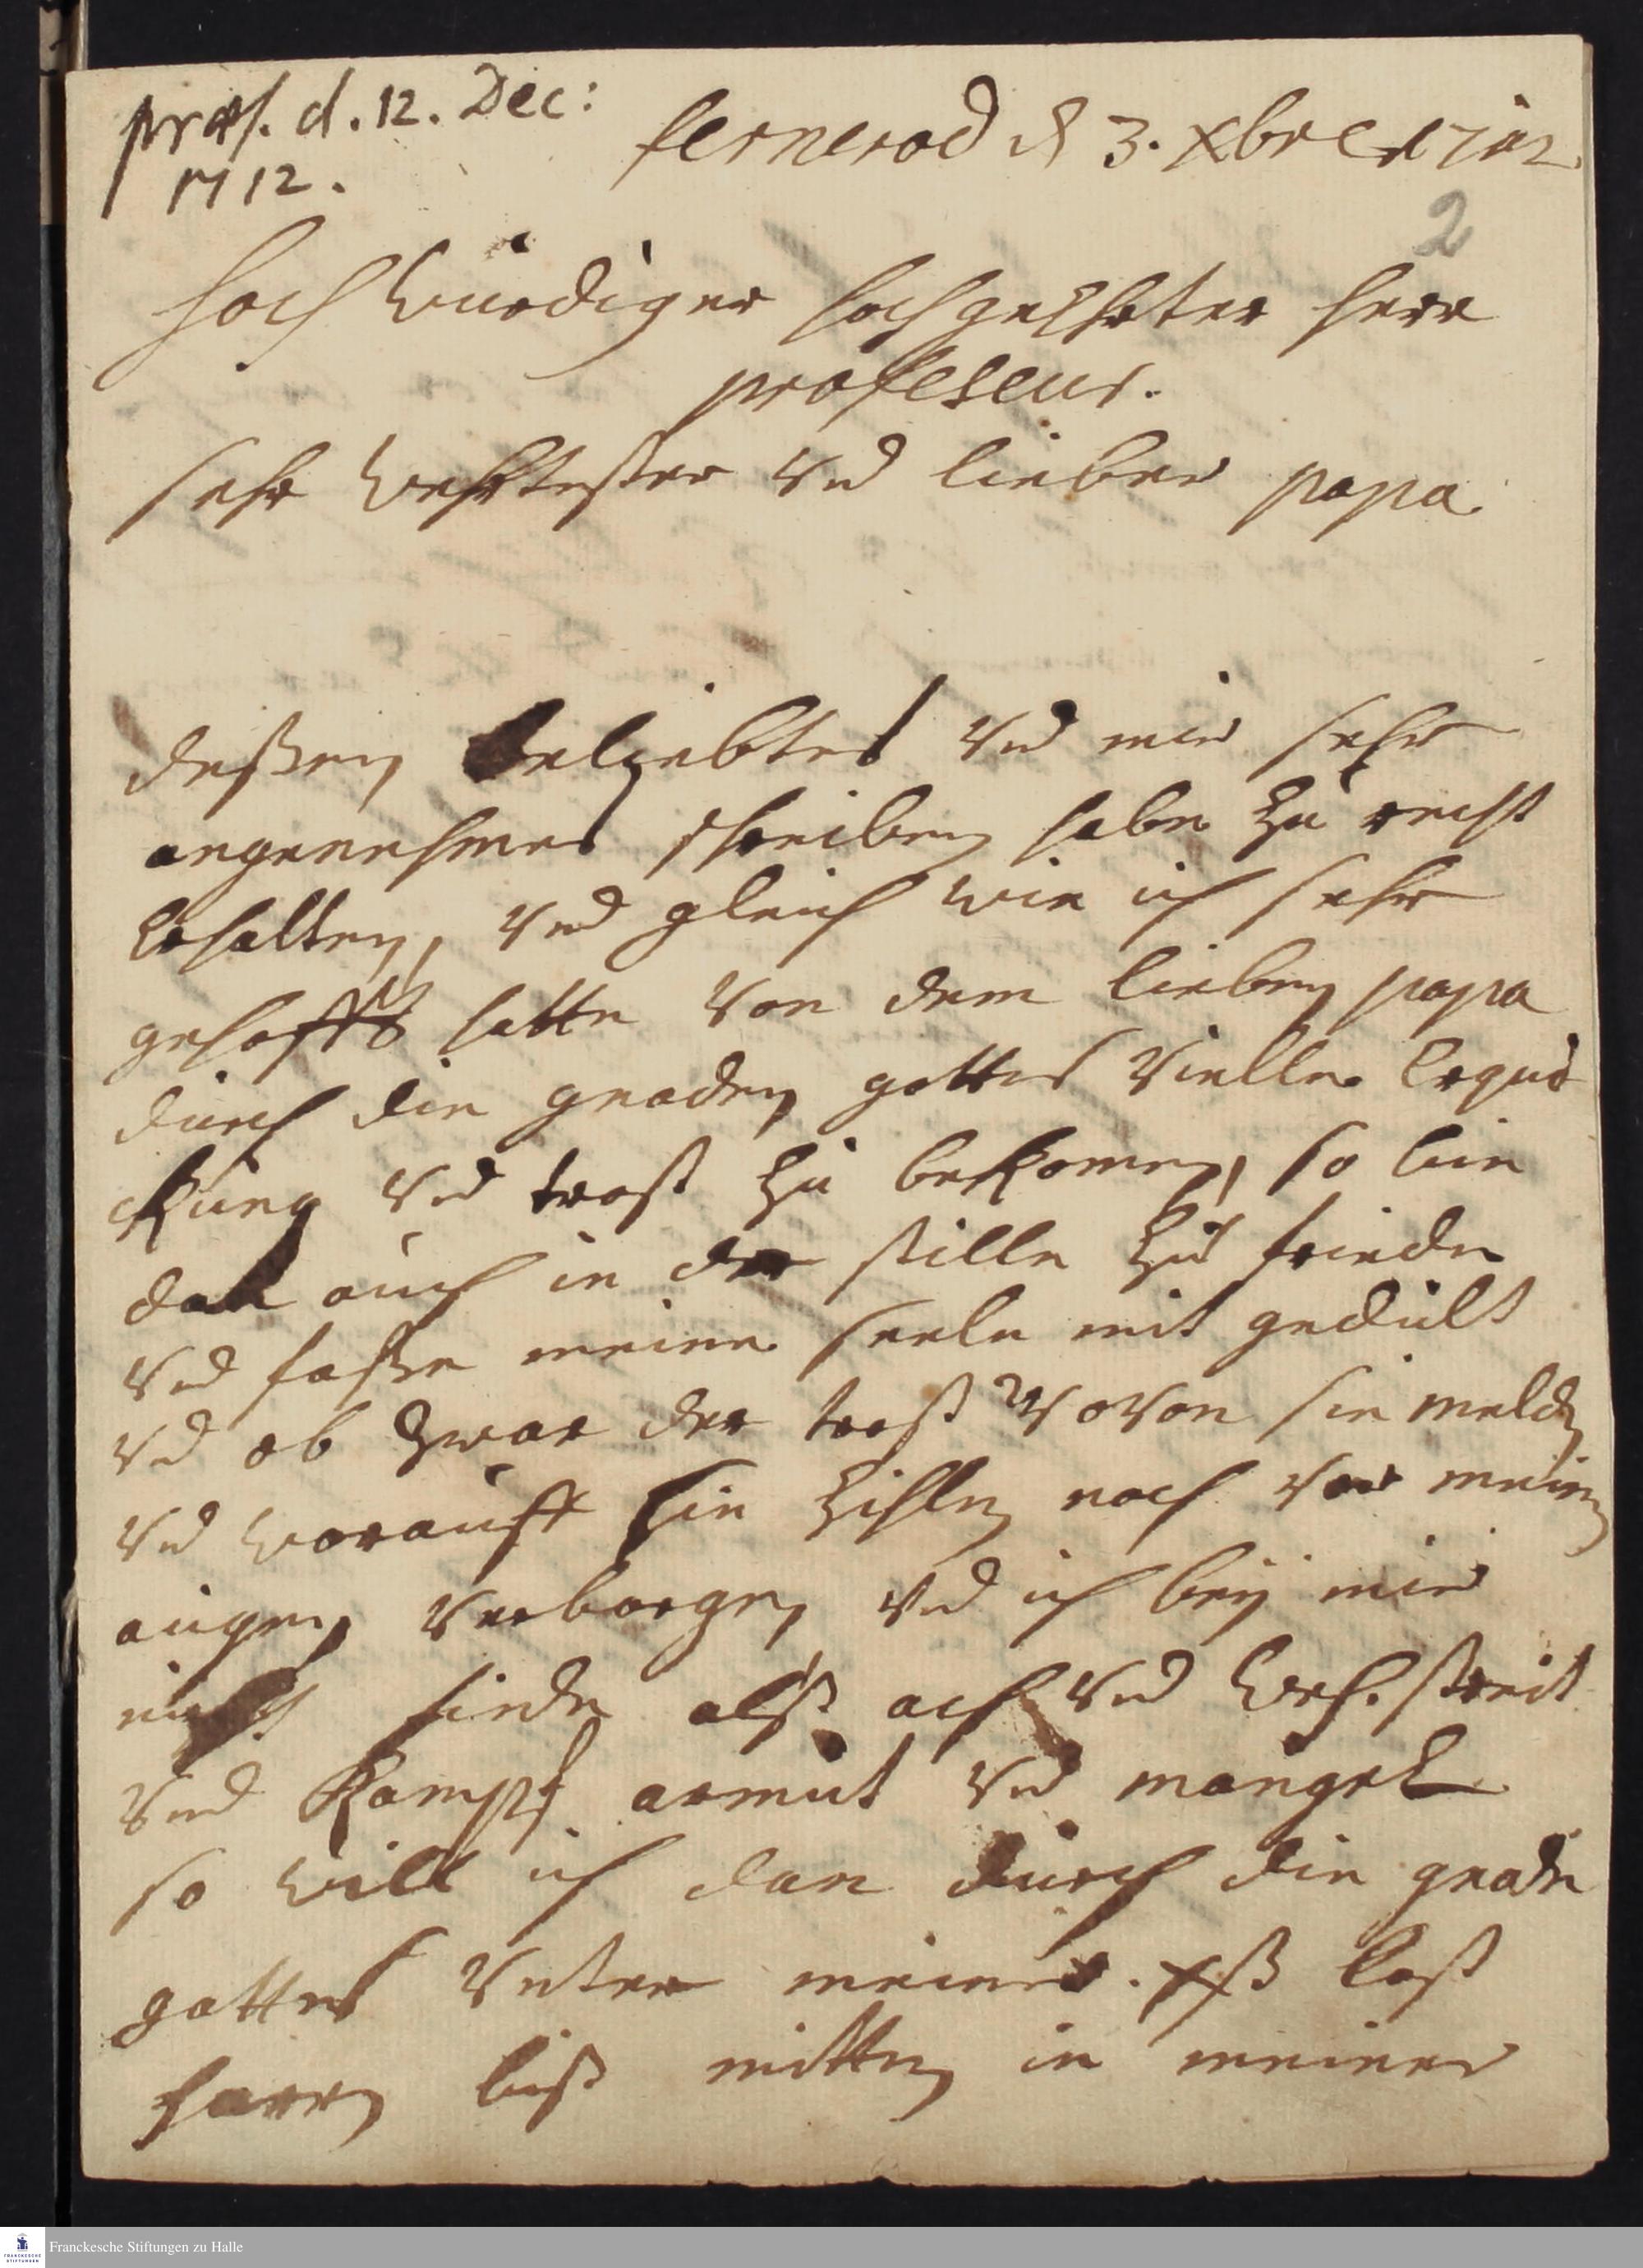 præs. d. 12. Dec:
1712.
fernerod d 3. Xbre 1712
2
Hoch würdiger hochgeehrter herr
professeur.
sehr wehrtester Und lieber papa
deßen beliebtes Und mir sehr
angenehmes schreiben habe zu recht
Erhalten, Und gleich wie ich sehr
gehofft hatte Von dem lieben papa
durch die gnaden gottes Vielle Erqui
ckung Und trost zu bekomen, so bin
dan auch in der stille zu friede
Und faße meine seele mit gedult
Und ob zwar der trost woVon sie melden
Und worauff sie zihlen noch Vor meinen
augen Verborgen Und ich beÿ mir
nichts finde alß ach Und Weh. streit
Und Kampf armut Und mangel
so will ich dan durch die gnade
gottes Unter meiner last
harren biß mitten in meiner
Franckesche Stiftungen zu Halle